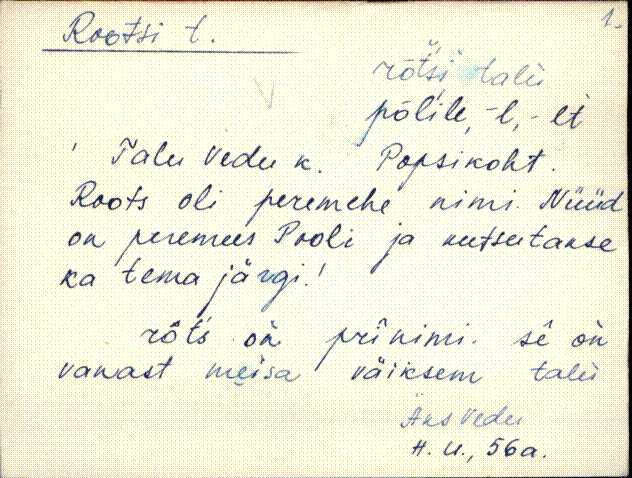 1.
Rootsi t.
rȭt́śi talu
pōlile, -l, -lt
Talu Vedu k. Popsikoht.
Roots oli peremehe nimi. Nüüd
on peremees Pooli ja kutsutakse
ka tema järgi.
rȭt́s on prīnimi. sē on
vanast meisa väiksem talu
Äks Vedu
H. U., 56a.